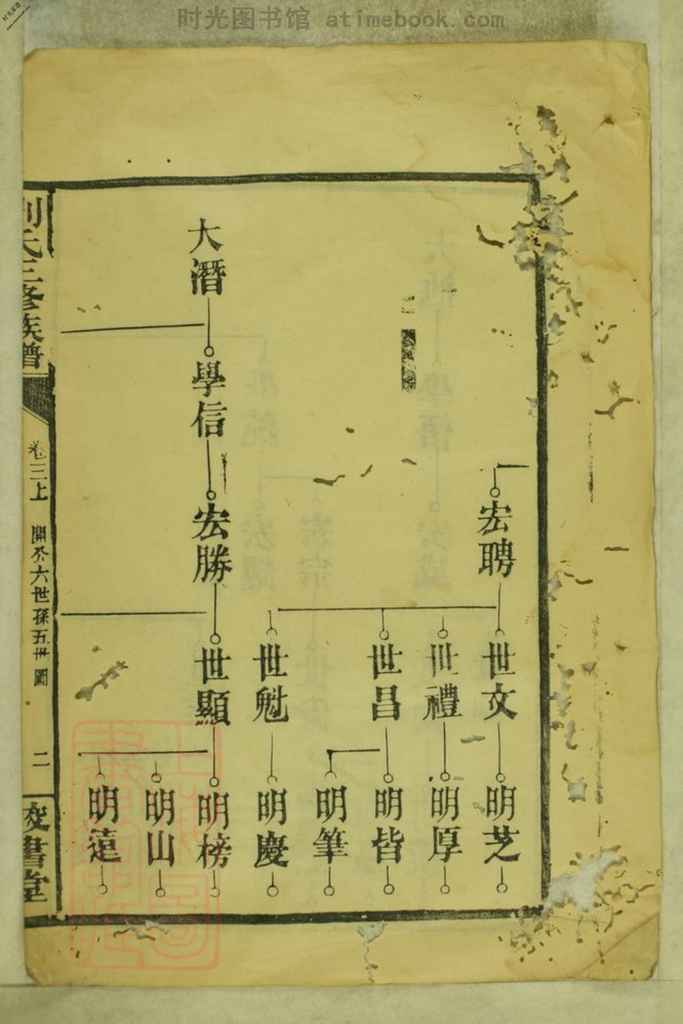 时光图书馆 atimebook.com
宏聘
世文
世禮
世昌
世魁
明芝
明厚
明皆
明筆
明慶
大潛
學信
宏勝
世顯
明榜
明山
明遠
劉氏三修族譜
卷三上
開公六世孫五世圖
二
書堂